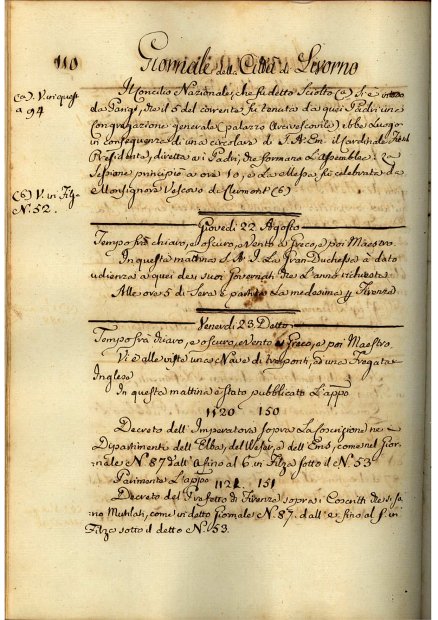 110 Giornale della Città di Livorno
(a). V. in questo a 94
Il Concilio Nazionale, che fu detto Sciolto (a) si è inteso
da Parigi, che il 5 del corrente fu tenuta da quei Padri una
Congregazione generale (palazzo Arcivescovile) ebbe luogo
in conseguenza di una circolare di S. A. Em. il Cardinale Fesch
Presidente, diretta ai Padri, che formano L'assemblea. La
Sessione principiò a ore 10, e La Messa fu celebrata da
Monsignore Vescovo di Clermont (b)
(b) V. in Filza N. 52.
Giovedì 22 Agosto
Tempo frà chiaro, e oscuro, e vento a Greco, e poi Maestro.
In questa mattina S. A. I. La Gran Duchessa à dato
udienza a quei de suoi Governati che L'anno richiesta
Alle ore 5 di Sera è partita La medesima p Firenze
Venerdì 23 Detto
Tempo frà chiaro, e oscuro, e vento a Greco, e poi Maestro
Vi è alle viste una Nave di tre ponti, ed una Fregata
Inglese
In questa mattina è stato pubblicato L'appo
1120 150
Decreto dell'Imperatore sopra La Coscrizione ne
Dipartimenti dell'Elba, del Weser, e dell'Ems, come nel Gior-
nale N. 87 dall' a fino al 6 in Filza sotto il N. 53
Parimente L'appo
1121 151
Decreto del Prefetto di Firenze sopra i Coscritti che si fa
no Mutilati, come in detto Giornale N. 87. dall' e. fino al f. in
Filza sotto il detto N. 53.